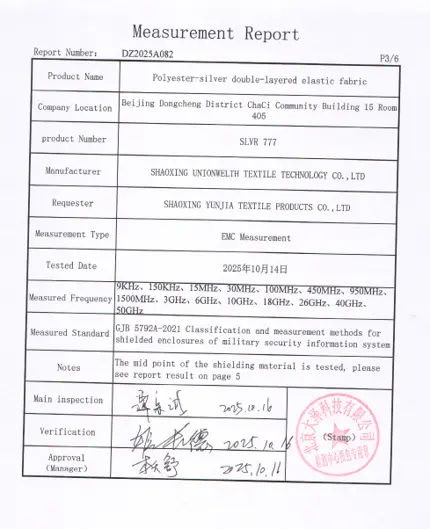 Measurement Report
Report Number: DZ2025A082
P3/6
Product Name Polyester-silver double-layered elastic fabric
Company Location Beijing Dongcheng District ChaCi Community Building 15 Room
405
product Number SLVR 777
Manufacturer SHAOXING UNIONWELTH TEXTILE TECHNOLOGY CO.,LTD
Requester SHAOXING YUNJIA TEXTILE PRODUCTS CO.,LTD
Measurement Type EMC Measurement
Tested Date 2025年10月14日
Measured Frequency 9KHz、150KHz、15MHz、30MHz、100MHz、450MHz、950MHz、
1500MHz、3GHz、6GHz、10GHz、18GHz、26GHz、40GHz、
50GHz
Measured Standard GJB 5792A-2021 Classification and measurement methods for
shielded enclosures of military security information system
Notes The mid point of the shielding material is tested, please
see report result on page 5
Main inspection 2025.10.16
Verification 2025.10.16
(Stamp)
Approval
(Manager) 2025.10.16